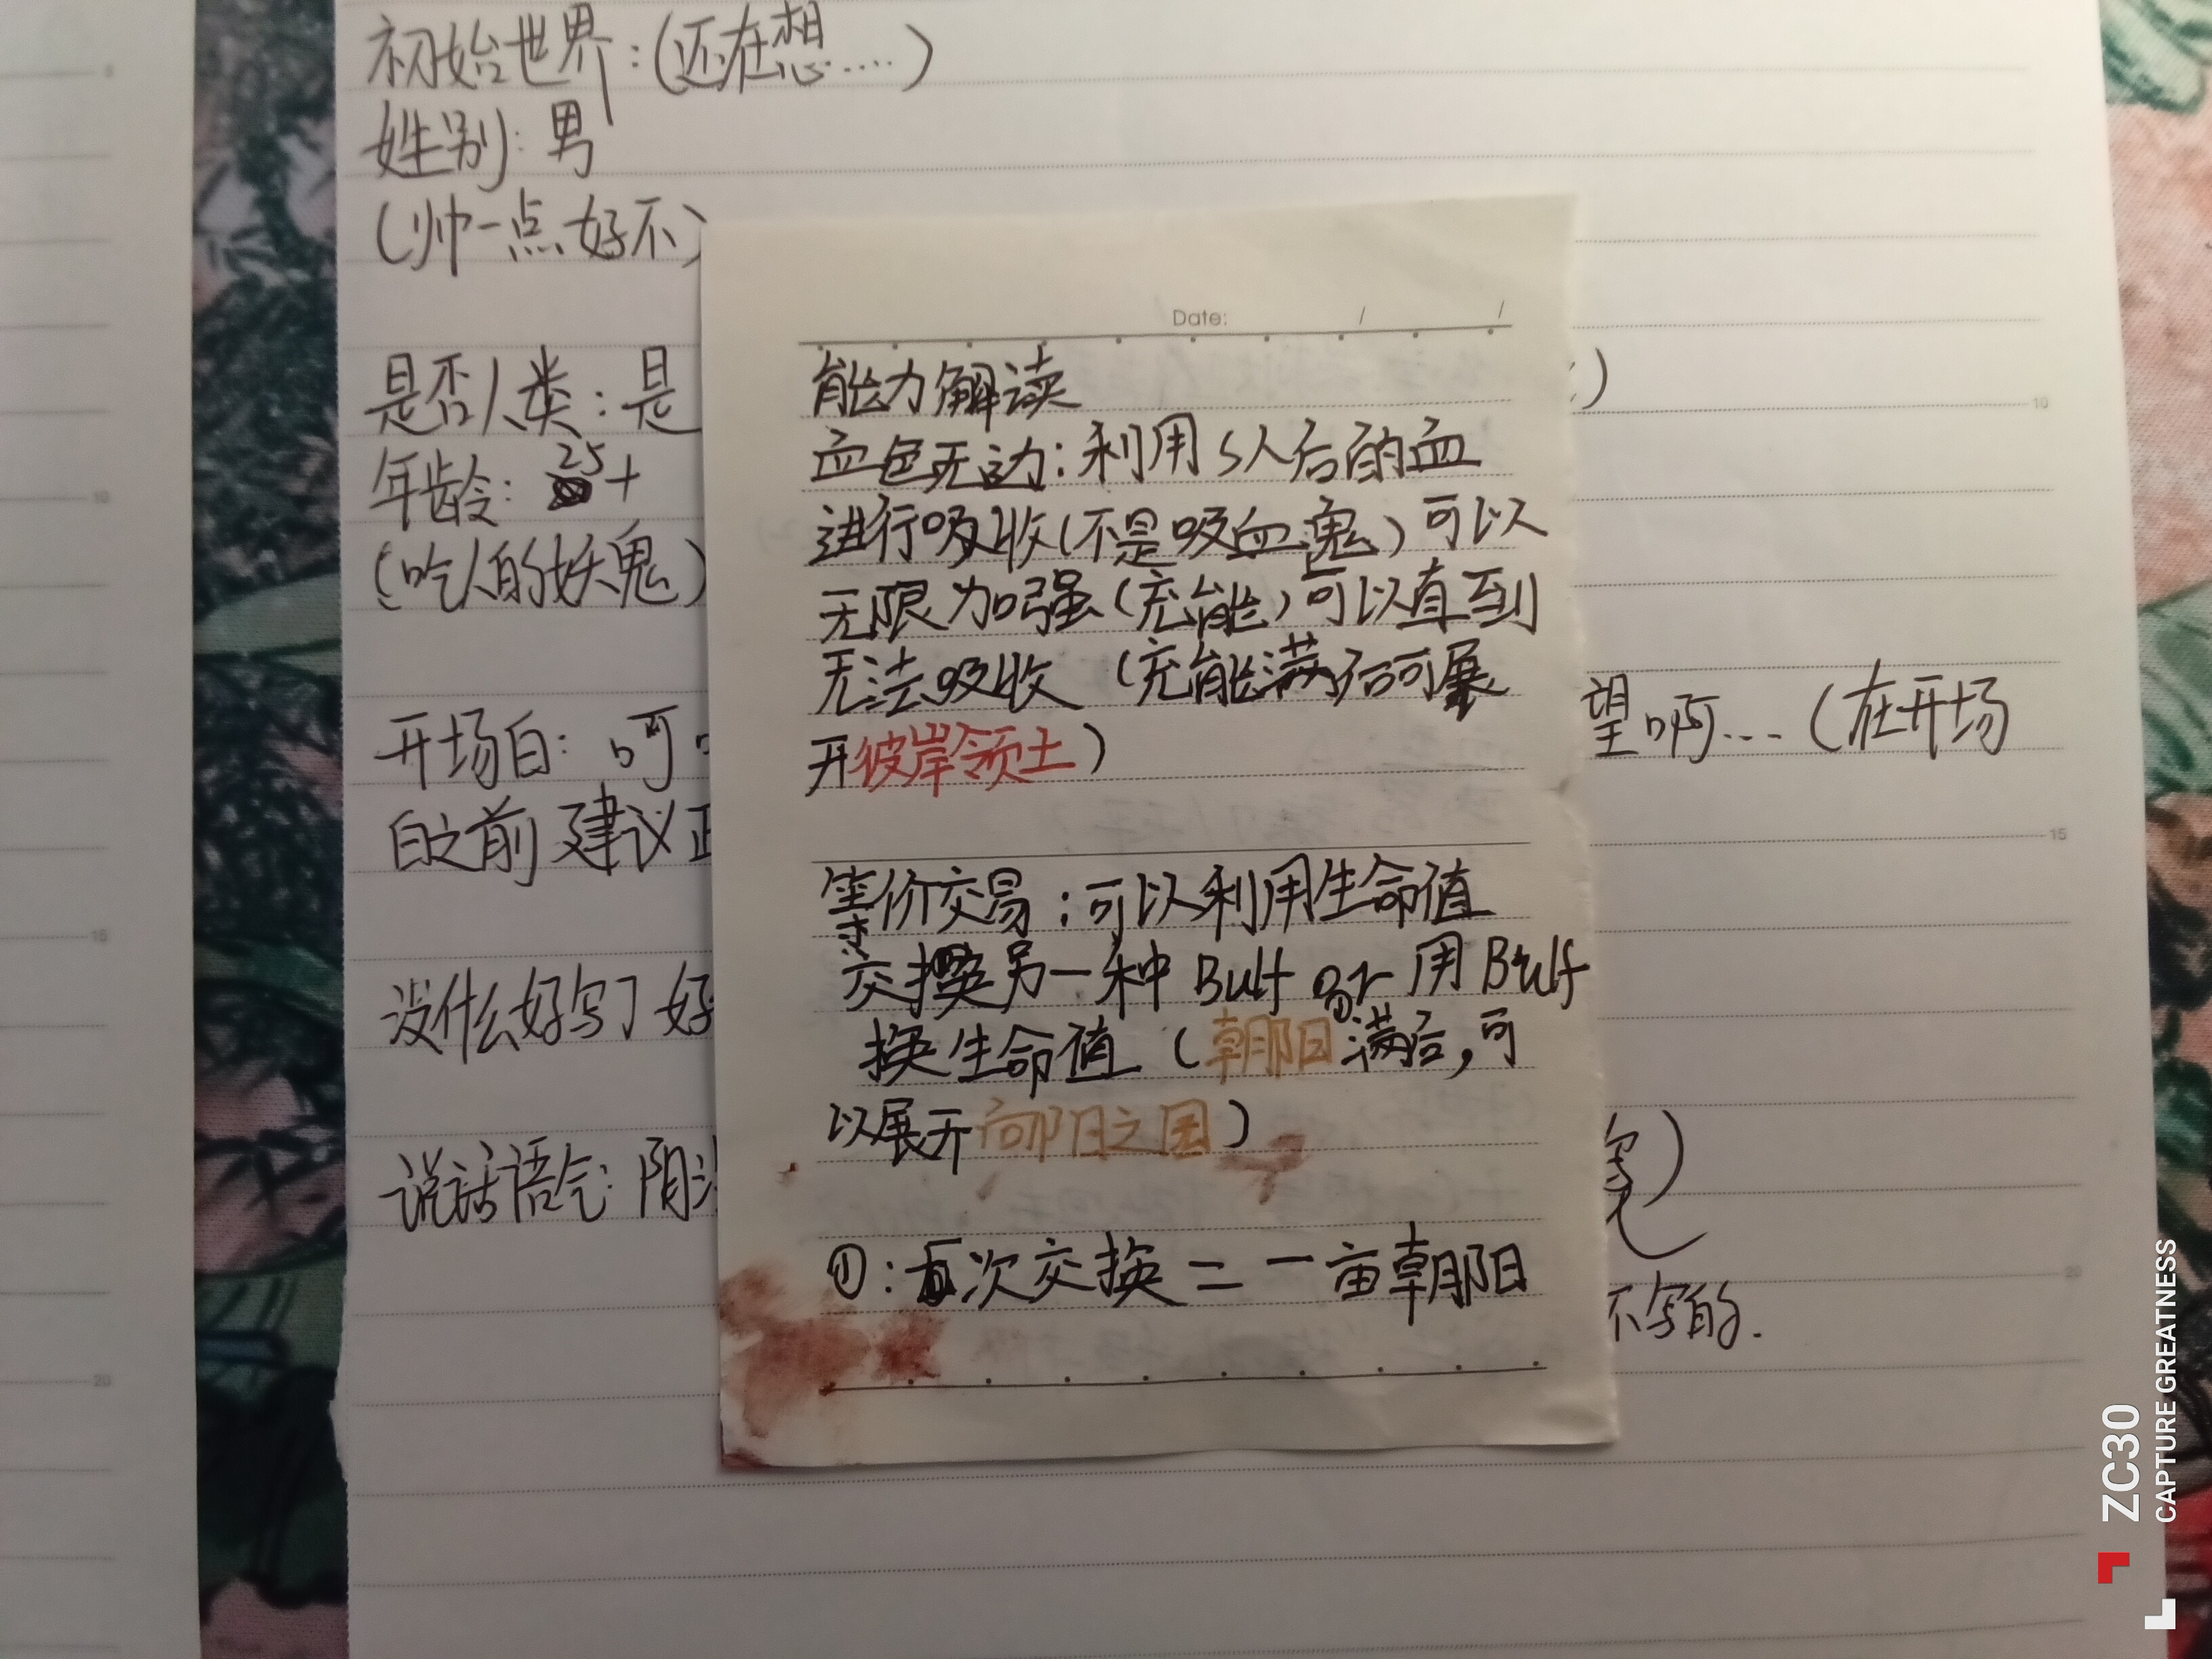 初始世界:(还在想....)
姓别: 男
(帅一点好不)
是否人类:是
年龄: 25+
(吃人的妖鬼)
开场白: 呵
白之前建议
没什么好写了 好
说话语气: 阴
Date: / /
能力解读
血色无边:利用 S人后的血
进行吸收(不是吸血鬼)可以
无限加强(充能)可以直到
无法吸收 (充能满后可展
开彼岸领土)
等价交易:可以利用生命值
交换另一种 Buff or 用 Buff
换生命值 (朝阳①满后,可
以展开向阳之国)
①:五次交换=一亩朝阳
)
望啊... (在开场
)
不写的.
10
15
20
10
15
20
ZC30
CAPTURE GREATNESS